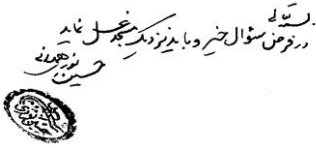 بسمه تعالی
در فرض سؤال خیر و باید نزدیک مسجد غسل نماید
حسین نوری همدانی